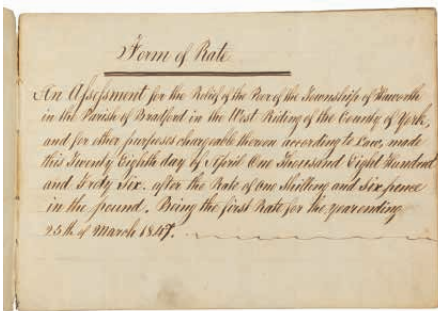 Form of Rate
An Assessment for the Relief of the Poor of the Township of Haworth
in the Parish of Bradford in the West Riding of the County of York,
and for other purposes chargeable thereon according to Law, made
this Twenty Eighth day of April One Thousand Eight Hundred
and Forty Six. after the Rate of One Shilling and Six pence
in the pound. Being the first Rate for the year ending
25th of March 1847.